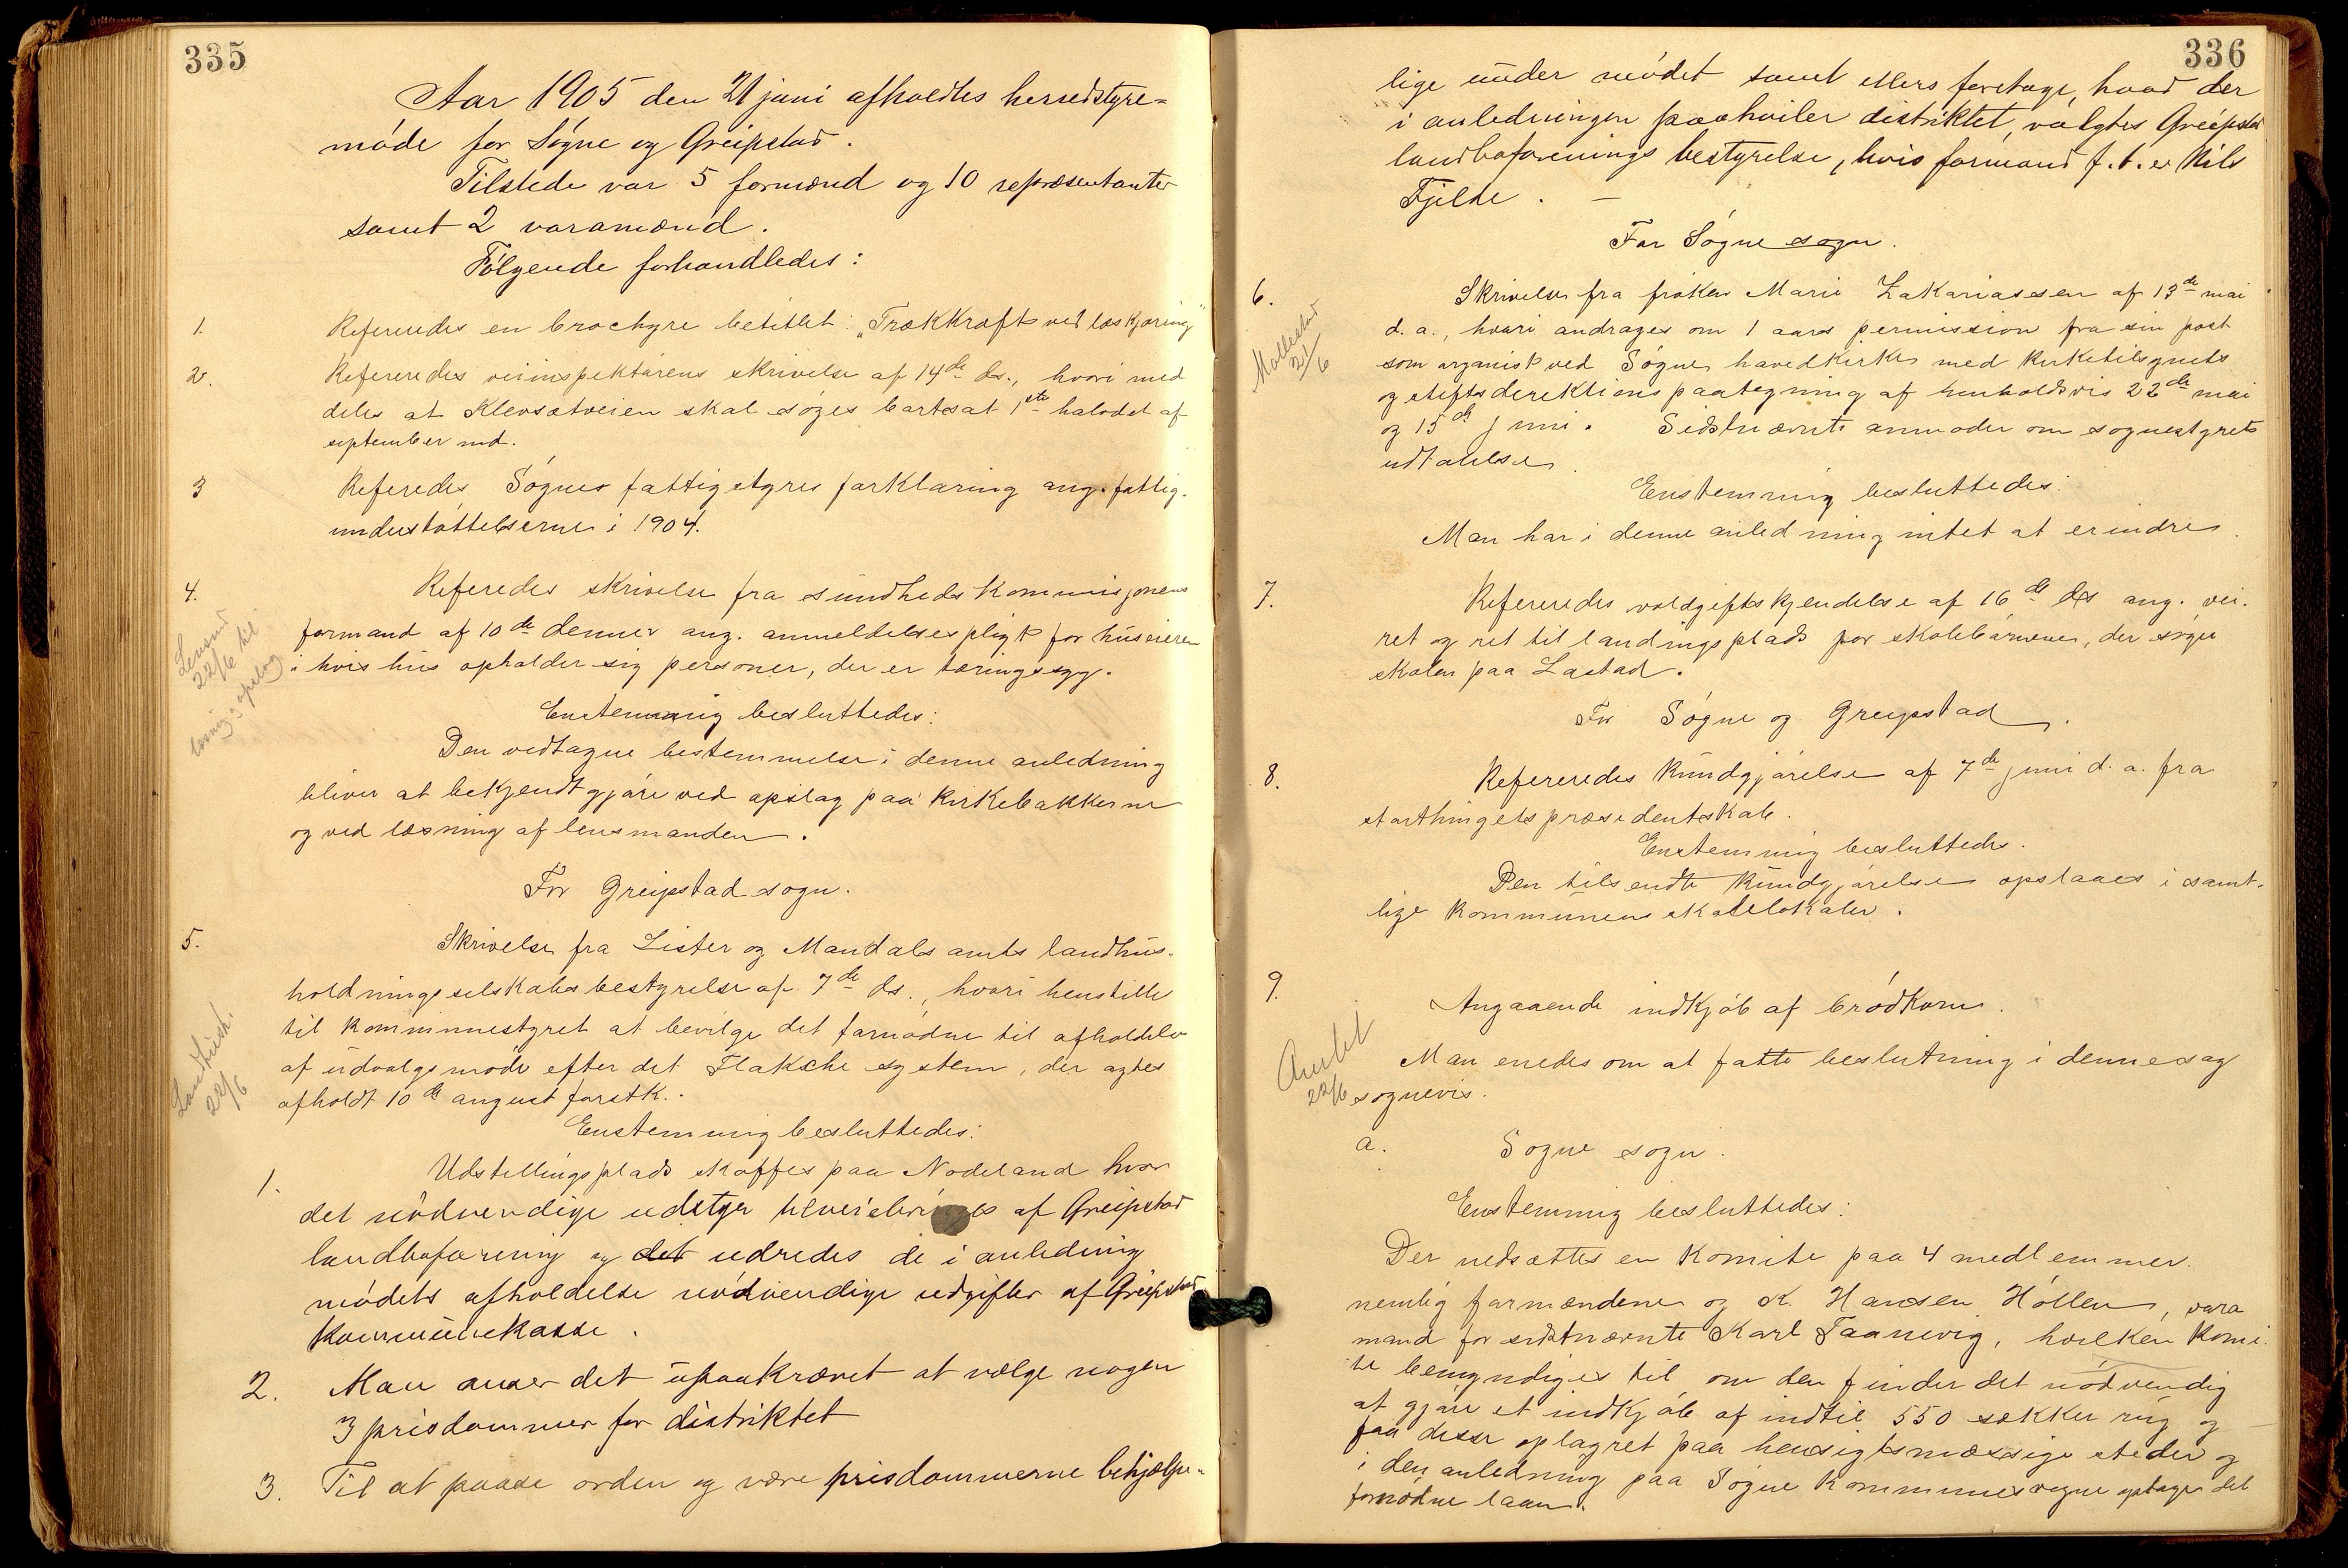 335
Aar 1905 den 21 juni afholdtes herredstyre=
møde for Søgne og Greipstad.
Tilstede var 5 formænd og 10 repræsentanter
samt 2 varamænd.
Følgende forhandledes:
1. Refereredes en brochyre betitlet: "Trækkraft ved læskjøring"
2. Refereredes veiinspektørens skrivelse af 14de ds., hvori med
deles at Klevsætveien skal søges bortsat 1ste halvdel af
september md.
3 Referedes Søgnes fattigstyres forklaring ang. fattig-
understøttelserne i 1904.
4. Referedes skrivelse fra sundhedskommisjonens
formand af 10de dennes ang. anmeldelsespligt for huseieren
i hvis hus opholder sig personer, der er tæringssyg.
Lensmd
22/6 til
læsning & opslag
Enstemmig besluttedes:
Den vedtagne bestemmelse i denne anledning
bliver at bekjendtgjøre ved opslag paa kirkebakkerne
og ved læsning af lensmanden.
For Greipstad sogn.
5. Skrivelse fra Lister og Mandals amts landhus-
holdningsselskabs bestyrelse af 7de ds., hvori henstilles
til kommunestyret at bevilge det fornødne til afholdelse
af udvalgsmøde efter det Flakske system, der agtes
afholdt 10de august førstk.
Landhush.
22/6
Enstemmig besluttedes:
1. Udstillingsplads skaffes paa Nodeland hvor
det nødvendige udstyr tilveiebringes af Greipstad
landboforening og det udredes de i anledning
mødets afholdelse nødvendige udgifter af Greipstad
kommunekasse.
2. Man anser det upaakrævet at vælge nogen
3 prisdommer for distriktet
3. Til at paase orden og være prisdommerne behjælpe-
336
lige under mødet samt ellers foretage, hvad der
i anledningen paahviler distriktet, valgtes Greipstad
landboforenings bestyrelse, hvis formand f. t. er Nils
Fjelde. —
For Søgne sogn.
6. Skrivelse fra frøken Marie Zakariassen af 13de mai
d. a., hvori andrages om 1 aars permission fra sin post
som organist ved Søgne hovedkirke med kirketilsynets
og stiftsdirektionspaategning af henholdsvis 22de mai
og 15de juni. Sidstnævnte anmoder om sognestyrets
udtalelse.
Mollestad
21/6
Enstemmig besluttedes:
Man har i denne anledning intet at erindre.
7. Refereredes voldgiftskjendelse af 16de ds ang. vei-
ret og ret til landingsplads for skolebørnene, der søger
skolen paa Lastad.
For Søgne og Greipstad.
8. Refereredes kundgjørelse af 7de juni d. a. fra
storthingets præsidentskab.
Enstemmig besluttedes.
Den tilsendte kundgjørelse opslaaes i samt-
lige kommunens skolelokaler.
9. Angaaende indkjøb af brødkorn.
Man enedes om at fatte beslutning i denne sag
sognevis.
Amtet
22/6
a. Sogne sogn.
Enstemmig besluttedes:
Der nedsættes en komite paa 4 medlemmer.
nemlig formændene og K. Hansen Høllen, vara
mand for sidstnævnte Karl Taanevig, hvilken komi-
te bemyndiges til om den finder det nødvendig
at gjøre et indkjøb af indtil 550 sækker rug og
faa disse oplagret paa hensigtsmæssige steder og
i den anledning paa Søgne kommunes vegne optage det
fornødne laan.